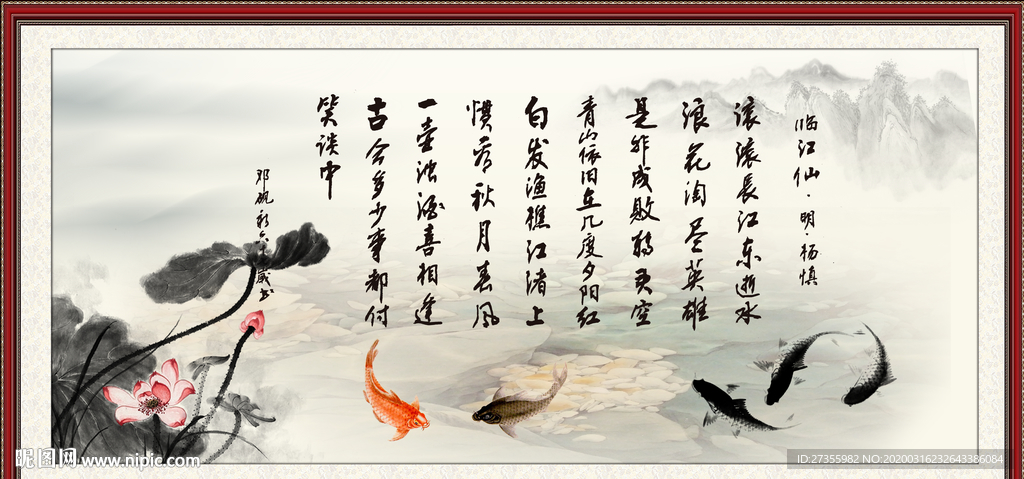 临江仙·明·杨慎
滚滚长江东逝水
浪花淘尽英雄
是非成败转头空
青山依旧在几度夕阳红
白发渔樵江渚上
惯看秋月春风
一壶浊酒喜相逢
古今多少事都付
笑谈中
昵图网 www.nipic.com
ID:27355982 NO:20200316232643386084